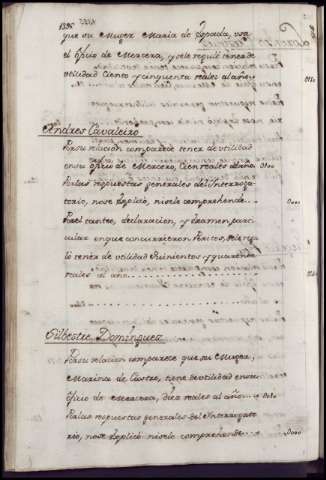 1336
que su Muger Maria de Losada, usa
el oficio de Mercera, y sele regulò tener de
utilidad Ciento y cinquenta reales al año
Andres Cavaleiro
Porsu relacion comparece tener de utilidad
ensu oficio de Mercero, Cien reales al año
Porlas respuestas generales del Interroga-
torio, nose explicò, nisele comprehende
Porel tanteo, declaracion, y examen parti-
cular enque concurrieron Peritos, sele regu-
lò tener de utilidad Quinientos y quarenta
reales al año
Silbestre Dominguez
Porsu relacion comparece que su Muger,
Maria de Castro, tiene de utilidad ensu
oficio de Mercera, diez reales al año
Porlas respuestas generales del Interrogato-
rio, nose explicò nisele comprehende